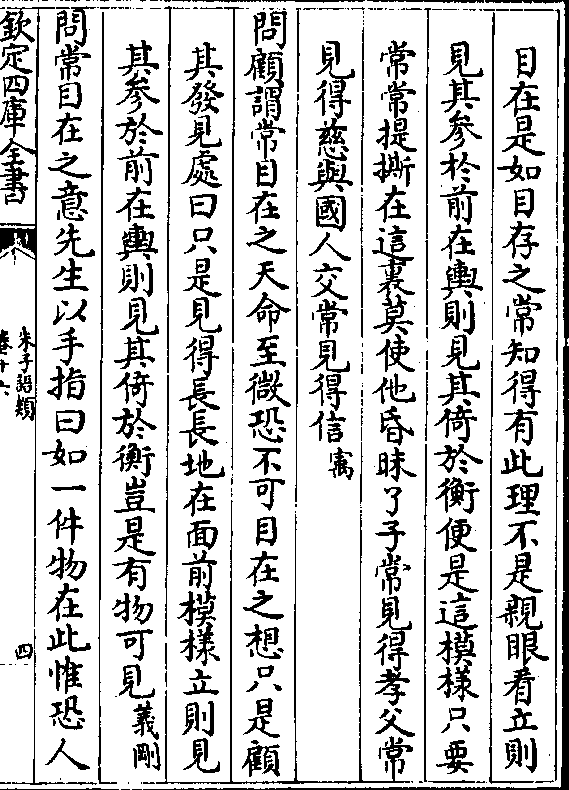 目在是如目存之常知得有此理不是親眼看立則
見其参於前在輿則見其倚於衡便是這模樣只要
常常提撕在這裏莫使他昏昧了子常見得孝父常
見得慈與國人交常見得信㝢
問顧諟常目在之天命至微恐不可目在之想只是顧
其發見處曰只是見得長長地在面前模樣立則見
其参於前在輿則見其倚於衡豈是有物可見義剛
問常目在之意先生以手指曰如一件物在此惟恐人
欽定四庫全書
朱子語類
卷十六
四